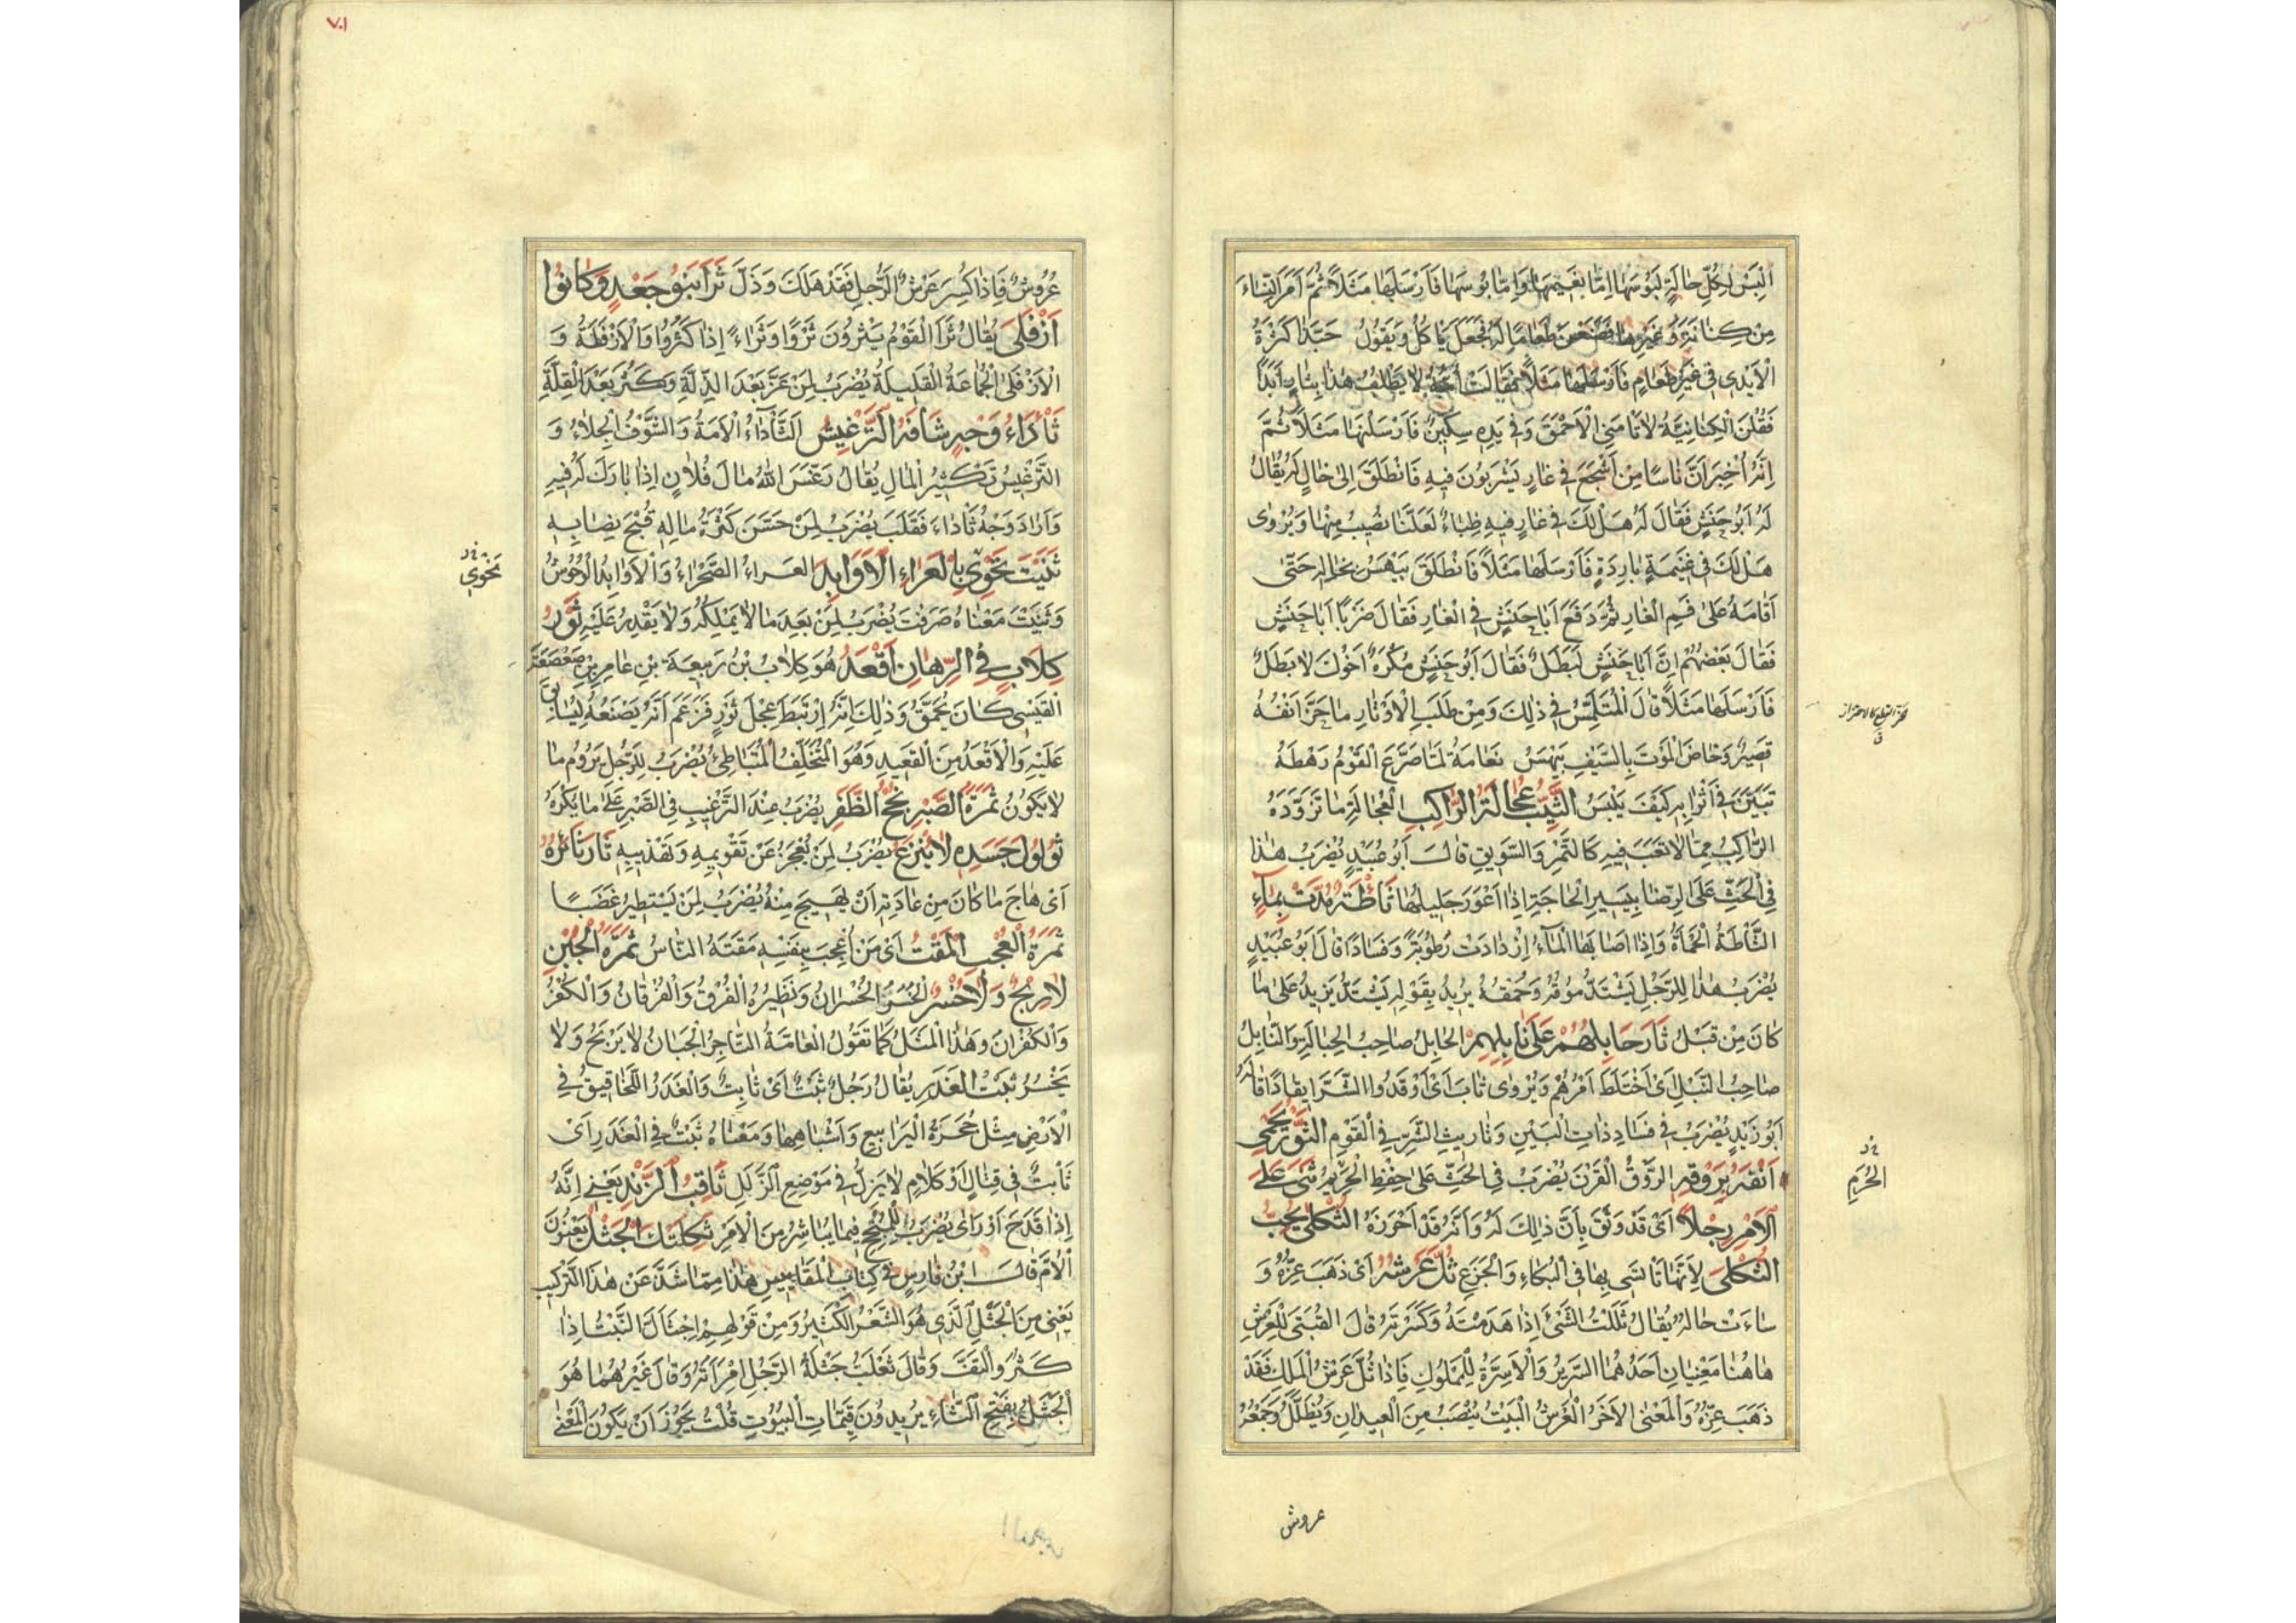 اَلْبَسْ لِكُلِّ حَالَةٍ لَبُوسَهَا اِمَّا نَعِيمَهَا وَاِمَّا بُوسَهَا فَاَرْسَلَهَا مَثَلًا ثُمَّ اَمَرَ النِّسَاءَ
مِنْ كِنَانَةَ وَغَيْرِهَا فَصَنَعْنَ طَعَامًا لَهُ فَجَعَلَ يَاكُلُ وَيَقُولُ حَبَّذَا كَثْرَةُ
الْاَيْدِى فِى غَيْرِ طَعَامٍ فَاَرْسَلَهَا مَثَلًا فَقَالَتْ اُمُّهُ لَا يَطْلُبُ هٰذَا بِثَارٍ اَبَدًا
فَقُلْنَ الْكِنَانِيَّةُ لَا تَامَنِى الْاَحْمَقَ وَفِى يَدِهِ سِكِّينٌ فَاَرْسَلْنَهَا مَثَلًا ثُمَّ
اِنَّهُ اُخْبِرَ اَنَّ نَاسًا مِنْ اَشْجَعَ فِى غَارٍ يَشْرَبُونَ فِيهِ فَانْطَلَقَ اِلٰى خَالٍ لَهُ يُقَالُ
لَهُ اَبُو حَنَشٍ فَقَالَ لَهُ هَلْ لَكَ فِى غَارٍ فِيهِ ظِبَاءٌ لَعَلَّنَا نُصِيبُ مِنْهَا وَيُرْوٰى
هَلْ لَكَ فِى غَنِيمَةٍ بَارِدَةٍ فَاَرْسَلَهَا مَثَلًا فَانْطَلَقَ بَيْهَسُ بِخَالِهِ حَتّٰى
اَقَامَهُ عَلٰى فَمِ الْغَارِ ثُمَّ دَفَعَ اَبَا حَنَشٍ فِى الْغَارِ فَقَالَ ضَرْبًا اَبَا حَنَشٍ
فَقَالَ بَعْضُهُمْ اِنَّ اَبَا حَنَشٍ لَبَطَلٌ فَقَالَ اَبُو حَنَشٍ مُكْرَهٌ اَخُوكَ لَا بَطَلٌ
فَاَرْسَلَهَا مَثَلًا قَالَ الْمُتَلَمِّسُ فِى ذٰلِكَ وَمِنْ طَلَبِ الْاَوْتَارِ مَا حَزَّ اَنْفَهُ
قَصِيرٌ وَخَاضَ الْمَوْتَ بِالسَّيْفِ بَيْهَسُ نَعَامَةُ لَمَّا صَرَّعَ الْقَوْمُ رَهْطَهُ
تَبَيَّنَ فِى اَثْوَابِهِ كَيْفَ يَلْبَسُ الثَّيِّبُ عُجَالَةُ الرَّاكِبِ الْعُجَالَةُ مَا تَزَوَّدَهُ
الرَّاكِبُ مِمَّا لَا تَعَبَ فِيهِ كَالتَّمْرِ وَالسَّوِيقِ قَالَ اَبُو عُبَيْدٍ يُضْرَبُ هٰذَا
فِى الْحَثِّ عَلَى الرِّضَا بِيَسِيرِ الْحَاجَةِ اِذَا اَعْوَزَ جَلِيلُهَا ثَأْطَةٌ مُدَّتْ بِمَاءٍ
الثَّأْطَةُ الْحَمْأَةُ وَاِذَا اَصَابَهَا الْمَاءُ اِزْدَادَتْ رُطُوبَةً وَفَسَادًا قَالَ اَبُو عُبَيْدٍ
يُضْرَبُ هٰذَا لِلرَّجُلِ يَشْتَدُّ مُوقُهُ وَحُمْقُهُ يُرِيدُ بِقَوْلِهِ يَشْتَدُّ يَزِيدُ عَلٰى مَا
كَانَ مِنْ قَبْلُ ثَارَ حَابِلُهُمْ عَلٰى نَابِلِهِمْ الْحَابِلُ صَاحِبُ الْحِبَالَةِ وَالنَّابِلُ
صَاحِبُ النَّبْلِ اَىْ اخْتَلَطَ اَمْرُهُمْ وَيُرْوٰى ثَابَ اَىْ اَوْقَدُوا الشَّرَّ اِيقَادًا قَالَهُ
اَبُو زَيْدٍ يُضْرَبُ فِى فَسَادِ ذَاتِ الْبَيْنِ وَتَارِيثِ الشَّرِّ فِى الْقَوْمِ الثَّوْرُ يَحْمِى
اَنْفَهُ بِرَوْقِهِ الرَّوْقُ الْقَرْنُ يُضْرَبُ فِى الْحَثِّ عَلٰى حِفْظِ الْحَرِيمِ ثَنٰى عَلَى
الْاَمْرِ رِجْلًا اَىْ قَدْ وَثِقَ بِاَنَّ ذٰلِكَ لَهُ وَاَنَّهُ قَدْ اَحْرَزَهُ الثَّكْلٰى تُحِبُّ
الثَّكْلٰى لِاَنَّهَا تَاتَسٰى بِهَا فِى الْبُكَاءِ وَالْجَزَعِ ثُلَّ عَرْشُهُ اَىْ ذَهَبَ عِزُّهُ وَ
سَاءَتْ حَالُهُ يُقَالُ ثَلَلْتُ الشَّىْءَ اِذَا هَدَمْتَهُ وَكَسَرْتَهُ قَالَ الْقُتَبِىُّ لِلْعَرْشِ
هَاهُنَا مَعْنِيَانِ اَحَدُهُمَا السَّرِيرُ وَالْاَسِرَّةُ لِلْمُلُوكِ فَاِذَا ثُلَّ عَرْشُ الْمَلِكِ فَقَدْ
ذَهَبَ عِزُّهُ وَالْمَعْنَى الْاٰخَرُ الْعَرْشُ الْبَيْتُ يُنْصَبُ مِنَ الْعِيدَانِ وَيُظَلَّلُ وَجَمْعُهُ
الحُرَمِ
عروش
٧٠١
عُرُوشٌ فَاِذَا كُسِرَ عَرْشُ الرَّجُلِ فَقَدْ هَلَكَ وَذَلَّ ثَرَا بَنُو جَعْدٍ وَكَانُوا
اَزْفَلٰى يُقَالُ ثَرَا الْقَوْمُ يَثْرُونَ ثَرْوًا وَثَرَاءً اِذَا كَثُرُوا وَالْاَزْفَلَةُ وَ
الْاَزْفَلَى الْجَمَاعَةُ الْقَلِيلَةُ يُضْرَبُ لِمَنْ عَزَّ بَعْدَ الذِّلَّةِ وَكَثُرَ بَعْدَ الْقِلَّةِ
ثَأْدَاءُ وَجْهٍ شَافَهُ التَّرْغِيسُ الثَّأْدَاءُ الْاَمَةُ وَالشَّوْفُ الْجِلَاءُ وَ
التَّرْغِيسُ تَكْثِيرُ الْمَالِ يُقَالُ رَغَّسَ اللّٰهُ مَالَ فُلَانٍ اِذَا بَارَكَ لَهُ فِيهِ
وَاَرَادَ وَجْهُ ثَأْدَاءَ فَقَلَبَ يُضْرَبُ لِمَنْ حَسَّنَ كَثْرَةُ مَالِهِ قُبْحَ نِصَابِهِ
ثَنَيْتَ نَحْوِى بِالْعَرَاءِ الْاَوَابِدَ الْعَرَاءُ الصَّحْرَاءُ وَالْاَوَابِدُ الْوُحُوشُ
وَثَنَيْتَ مَعْنَاهُ صَرَفْتَ يُضْرَبُ لِمَنْ يَعِدُ مَا لَا يَمْلِكُهُ وَلَا يَقْدِرُ عَلَيْهِ ثَوْرُ
كِلَابٍ فِى الرِّهَانِ اَقْعَدُ هُوَ كِلَابُ بْنُ رَبِيعَةَ بْنِ عَامِرِ بْنِ صَعْصَعَةَ
الْقَيْسِى كَانَ يُحَمَّقُ وَذٰلِكَ اَنَّهُ اِرْتَبَطَ عِجْلَ ثَوْرٍ فَزَعَمَ اَنَّهُ يَصْنَعُهُ لِيُسَابِقَ
عَلَيْهِ وَالْاَقْعَدُ مِنَ الْقَعِيدِ وَهُوَ الْمُتَخَلِّفُ الْمُتَبَاطِئُ يُضْرَبُ لِلرَّجُلِ يَرُومُ مَا
لَا يَكُونُ ثَمَرَةُ الصَّبْرِ نُجْحُ الظَّفَرِ يُضْرَبُ عِنْدَ التَّرْغِيبِ فِى الصَّبْرِ عَلٰى مَا يُكْرَهُ
ثُؤْلُولُ جَسَدِهِ لَا يُنْزَعُ يُضْرَبُ لِمَنْ يُعْجَزُ عَنْ تَقْوِيمِهِ وَتَهْذِيبِهِ ثَارَ ثَائِرُهُ
اَىْ هَاجَ مَا كَانَ مِنْ عَادَتِهِ اَنْ يَهِيجَ مِنْهُ يُضْرَبُ لِمَنْ يَسْتَطِيرُ غَضَبًا
ثَمَرَةُ الْعُجْبِ الْمَقْتُ اَىْ مَنْ اُعْجِبَ بِنَفْسِهِ مَقَتَهُ النَّاسُ ثَمَرَةُ الْجُبْنِ
لَا رِبْحٌ وَلَا خُسْرٌ الْخُسْرُ الْخُسْرَانُ وَنَظِيرُهُ الْفُرْقُ وَالْفُرْقَانُ وَالْكُفْرُ
وَالْكُفْرَانُ وَهٰذَا الْمَثَلُ كَمَا تَقُولُ الْعَامَّةُ التَّاجِرُ الْجَبَانُ لَا يَرْبَحُ وَلَا
يَخْسَرُ ثَبْتُ الْغَدَرِ يُقَالُ رَجُلٌ ثَبْتٌ اَىْ ثَابِتٌ وَالْغَدَرُ اللَّخَاقِيقُ فِى
الْاَرْضِ مِثْلُ حُجَرَةِ الْيَرَابِيعِ وَاَشْبَاهِهَا وَمَعْنَاهُ ثَبْتٌ فِى الْغَدَرِ اَىْ
ثَابِتٌ فِى قِتَالٍ اَوْ كَلَامٍ لَا يَزِلُّ فِى مَوْضِعِ الزَّلَلِ ثَاقِبُ الزَّنْدِ يَعْنِى اِنَّهُ
اِذَا قَدَحَ اَوْرَى يُضْرَبُ لِلْمُنْجِحِ فِيمَا يُبَاشِرُ مِنَ الْاَمْرِ ثَكِلَتْكَ الْجَثَلُ يَعْنُونَ
الْاُمَّ قَالَ ابْنُ فَارِسٍ فِى كِتَابِ الْمَقَايِيسِ هٰذَا مِمَّا شَذَّ عَنْ هٰذَا التَّرْكِيبِ
يَعْنِى مِنَ الْجَثْلِ الَّذِى هُوَ الشَّعْرُ الْكَثِيرُ وَمِنْ قَوْلِهِمْ اِجْثَاَلَّ النَّبْتُ اِذَا
كَثُرَ وَالْتَفَّ وَقَالَ ثَعْلَبٌ جَثْلَةُ الرَّجُلِ اِمْرَاَتُهُ وَقَالَ غَيْرُهُمَا هُوَ
الْجَثَلُ بِفَتْحِ الثَّاءِ يُرِيدُونَ قَيِّمَاتِ الْبُيُوتِ قُلْتُ يَجُوزُ اَنْ يَكُونَ الْمَعْنٰى
نَحْوِى